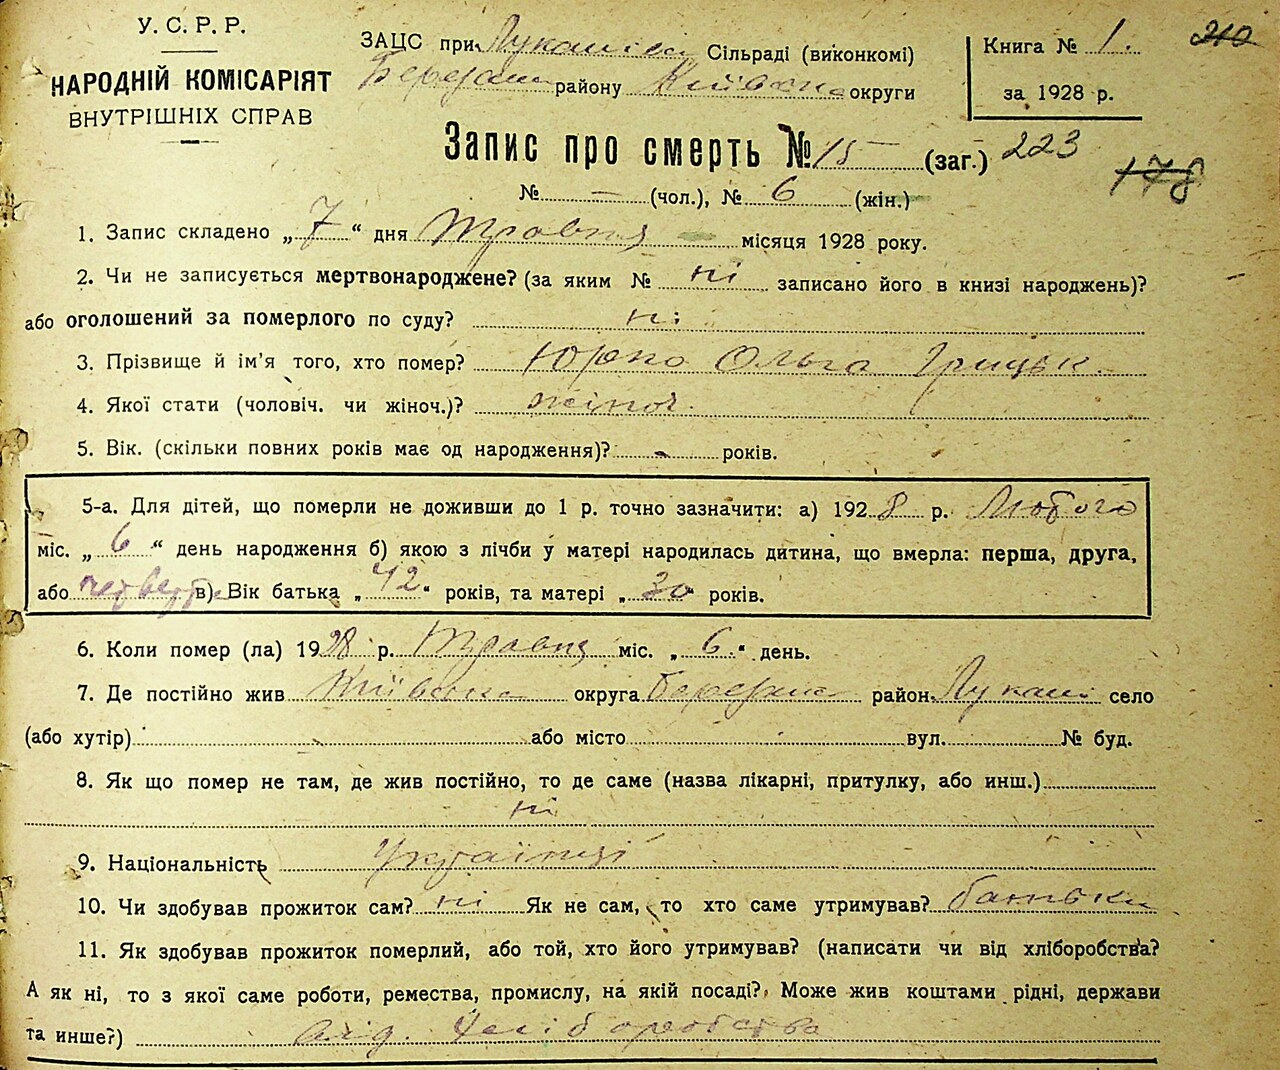 У. С. Р. Р.
НАРОДНІЙ КОМІСАРІЯТ
ВНУТРІШНІХ СПРАВ
ЗАЦС при Сільраді (виконкомі)
району округи
Книга № 1.
за 1928 р.
210
Запис про смерть № 15 (заг.) 223
178
№ — (чол.), № 6 (жін.)
1. Запис складено „ 7 “ дня Травня місяця 1928 року.
2. Чи не записується мертвонароджене? (за яким № ні записано його в книзі народжень)?
або оголошений за померлого по суду? ні
3. Прізвище й ім’я того, хто помер? Юрко Ольга Грицьк.
4. Якої стати (чоловіч. чи жіноч.)? жіноч.
5. Вік. (скільки повних років має од народження)? - років.
5-а. Для дітей, що померли не доживши до 1 р. точно зазначити: а) 1928 р. Лютого
міс. „ 6 “ день народження б) якою з лічби у матері народилась дитина, що вмерла: перша, друга,
або четверта в) Вік батька „ 42 “ років, та матері „ 30 “ років.
6. Коли помер (ла) 1928 р. Травня міс. „ 6. “ день.
7. Де постійно жив Київська округа район Лукаші село
(або хутір) або місто вул. № буд.
8. Як що помер не там, де жив постійно, то де саме (назва лікарні, притулку, або инш.)
ні
9. Національність Українці
10. Чи здобував прожиток сам? ні Як не сам, то хто саме утримував? батьки
11. Як здобував прожиток померлий, або той, хто його утримував? (написати чи від хліборобства?
А як ні, то з якої саме роботи, ремества, промислу, на якій посаді? Може жив коштами рідні, держави
та инше?) від. Хліборобства